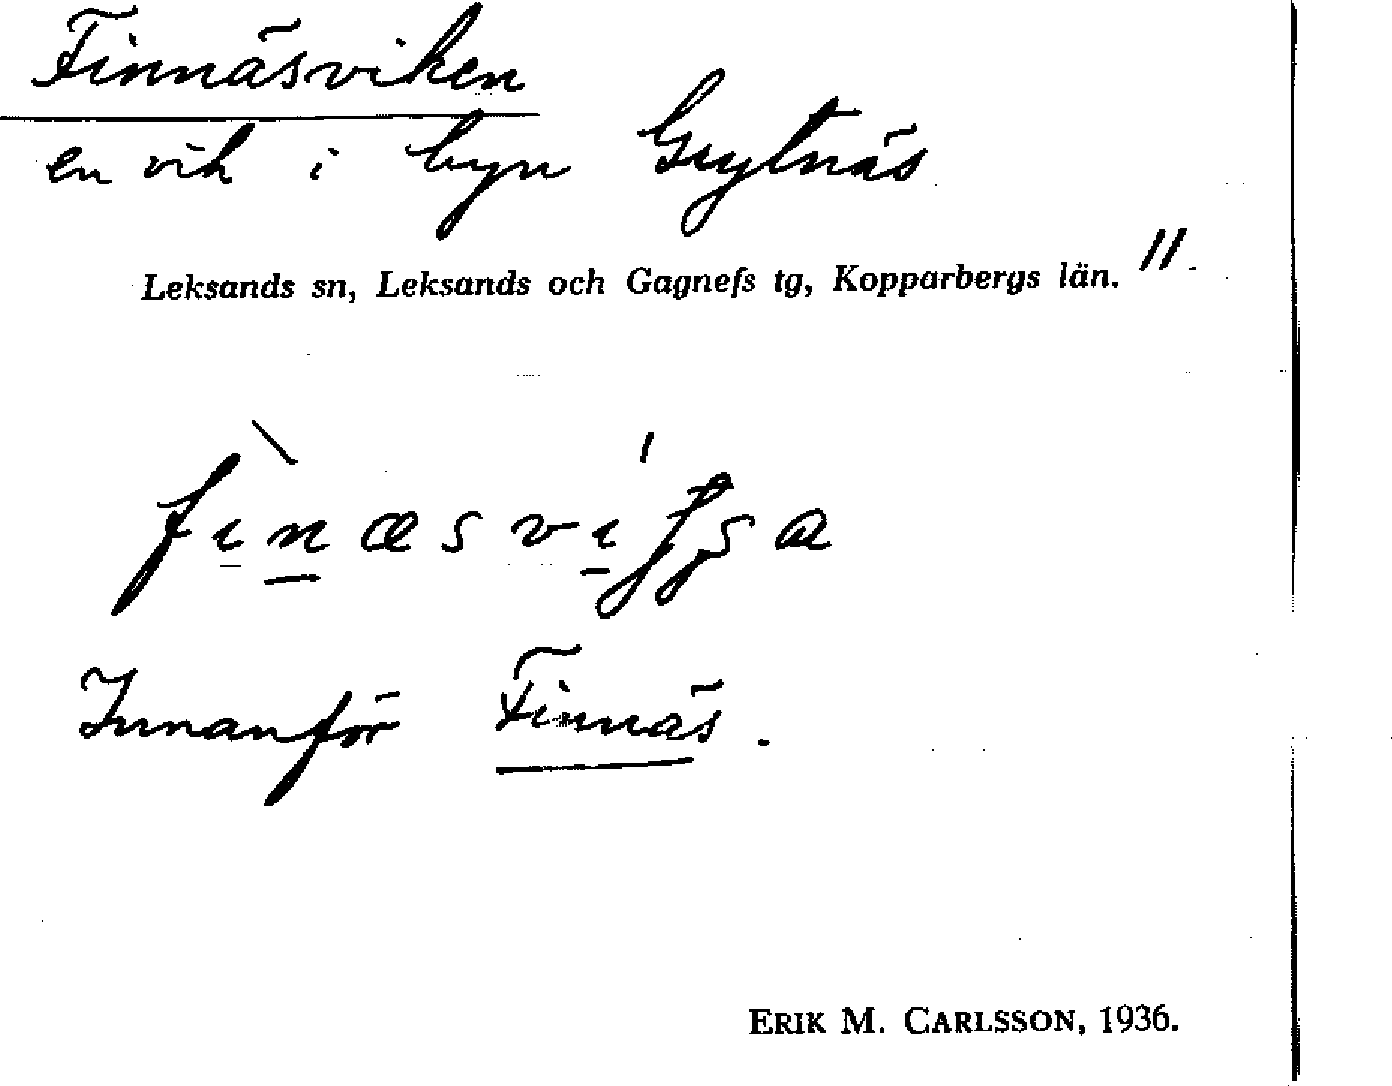 Finnäsviken
en vik i byn Grytnäs
Leksands sn, Leksands och Gagnefs tg, Kopparbergs län. 11
Innanför Finnäs.
ERIK M. CARLSSON, 1936.